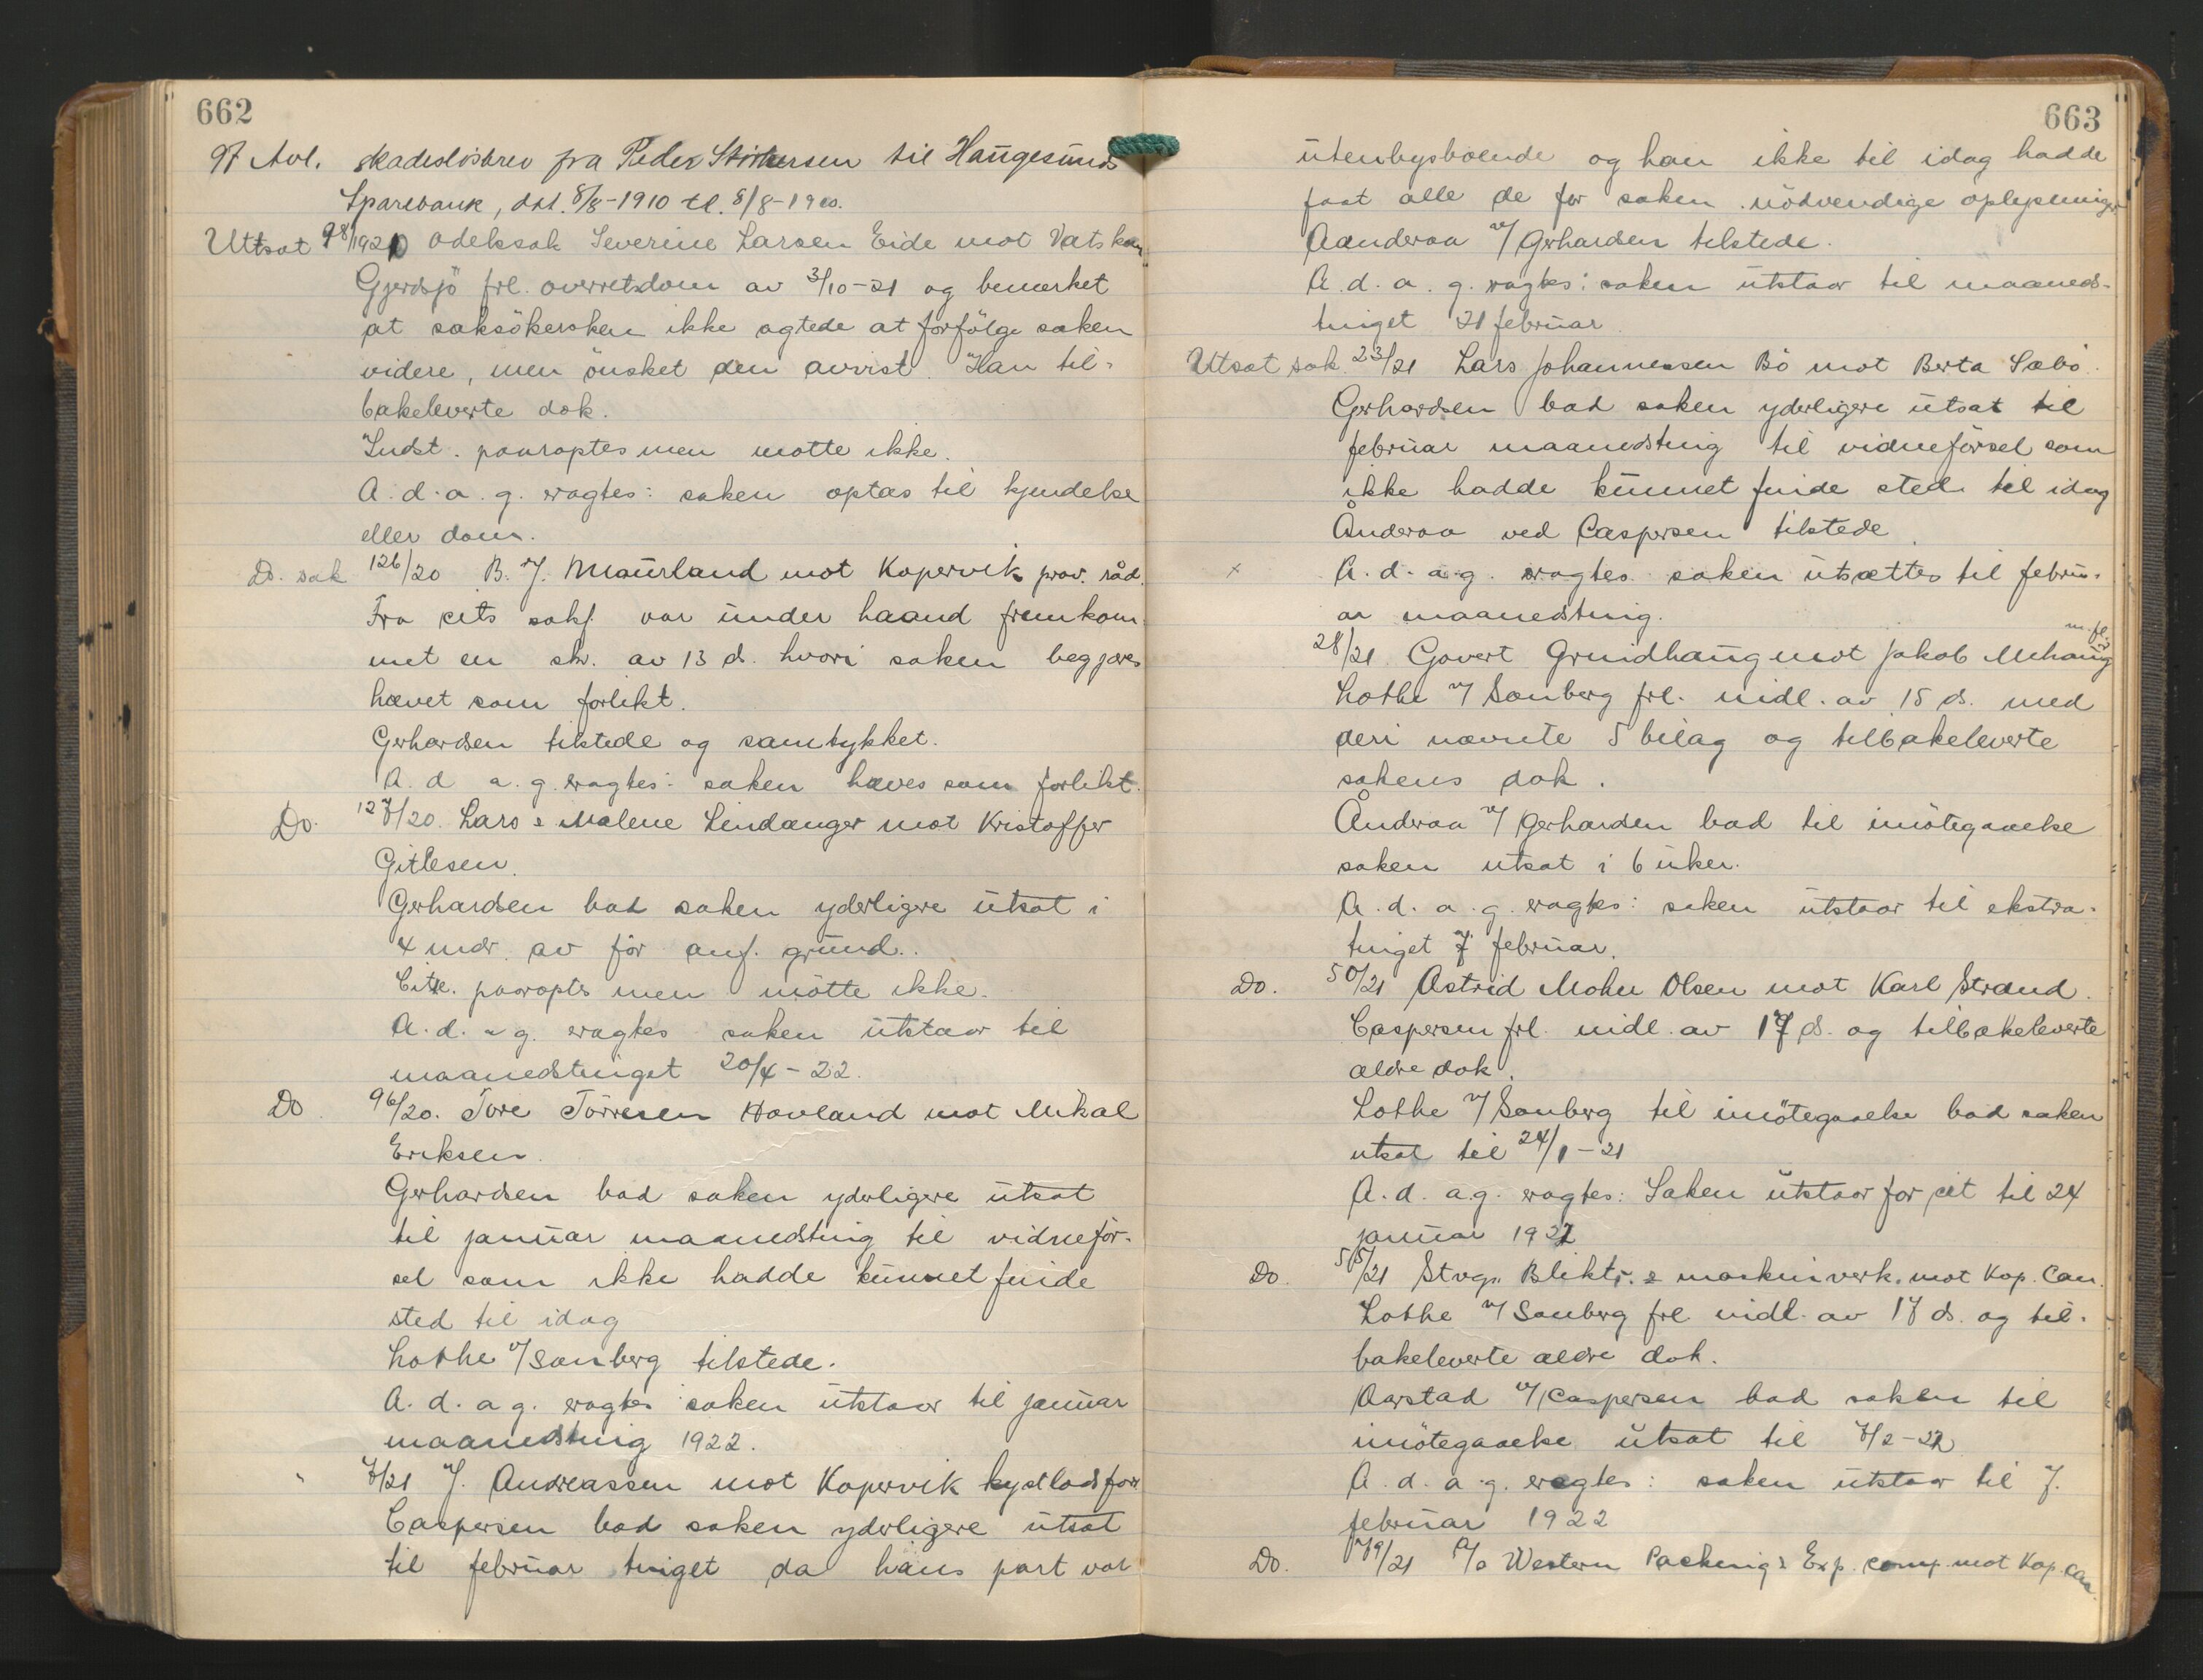 662
97 Avl. skadeslösbrev fra Peder Störkersen til Haugesunds
Sparebank, dat. 8/8-1910 tl. 8/8-1910.
Utsat 98/1920 odelssak Severine Larsen Eide mot Vats kom.
Gjerdsjö frl. overretsdom av 3/10-21 og bemerket
at saksökersken ikke agtede at forfölge saken
videre, men önsket den avvist. Han til-
bakeleverte dok.
Indst. paaroptes men mötte ikke.
A. d. a. g. eragtes: saken optas til kjendelse
eller dom.
Do. sak 126/20 B. J. Maurland mot Kopervik prov. råd.
Fra cits sakf. var under haand fremkom-
met en skr. av 13 ds. hvori saken begjæres
hævet som forlikt.
Gerhardsen tilstede og samtykket.
A. d a. g. eragtes: saken hæves som forlikt.
Do. 127/20. Lars & Malene Lindanger mot Kristoffer
Gitlesen.
Gerhardsen bad saken yderligere utsat i
4 mdr. av för anf. grund.
Citte. paaroptes men mötte ikke.
A. d. a g. eragtes saken utstaar til
maanedstinget 20/4-22.
Do. 96/20. Tore Törresen Hovland mot Mikal
Eriksen.
Gerhardsen bad saken yderligere utsat
til januar maanedsting til vidneför-
sel som ikke hadde kunnet finde
sted til idag
Lothe v/ Sonberg tilstede.
A. d. a g. eragtes saken utstaar til januar
maanedsting 1922.
" 7/21 J. Andreassen mot Kopervik kystlodsfor
Caspersen bad saken yderligere utsat
til februar tinget da hans part var
663
utenbysboende og han ikke til idag hadde
faat alle de for saken nödvendige oplysninger
Aanderaa v/ Gerhardsen tilstede.
A. d. a. g. eragtes: saken utstaar til maaneds-
tinget 21 februar.
Utsat sak. 23/21 Lars Johannessen Bö mot Berta Sæbö.
Gerhardsen bad saken yderligere utsat til
februar maanedsting til vidneförsel som
ikke hadde kunnet finde sted til idag
Ånderaa ved Caspersen tilstede.
x A. d. a. g. eragtes saken utsættes til febru-
ar maanedsting.
28/21 Govert Grindhaug mot Jakob Mehaug m. fl.
Lothe v/ Sonberg frl. indl. av 15 ds. med
deri nævnte 5 bilag og tilbakeleverte
sakens dok.
Ånderaa v/ Gerhardsen bad til imötegaaelse
saken utsat i 6 uker.
A. d. a. g. eragtes: saken utstaar til ekstra-
tinget 7 februar.
Do. 50/21 Astrid Mohn Olsen mot Karl Strand.
Caspersen frl. indl. av 17 ds. og tilbakeleverte
ældre dok.
Lothe v/ Sonberg til imötegaaelse bad saken
utsat til 24/1-21
A. d. a.g. eragtes: Saken utstaar for cit til 24
januar 1922
Do. 55/21 Stvgr. Blikt. & maskinverk. mot Kop. Can.
Lothe v/ Sonberg frl indl. av 17 ds. og til-
bakeleverte ældre dok.
Aarstad v/ Caspersen bad saken til
imötegaaelse utsat til 7/2-22
A. d. a. g. eragtes: saken utstaar til 7.
februar 1922
Do. 79/21 A/S Western Packing & Exp. comp. mot Kop. Can.